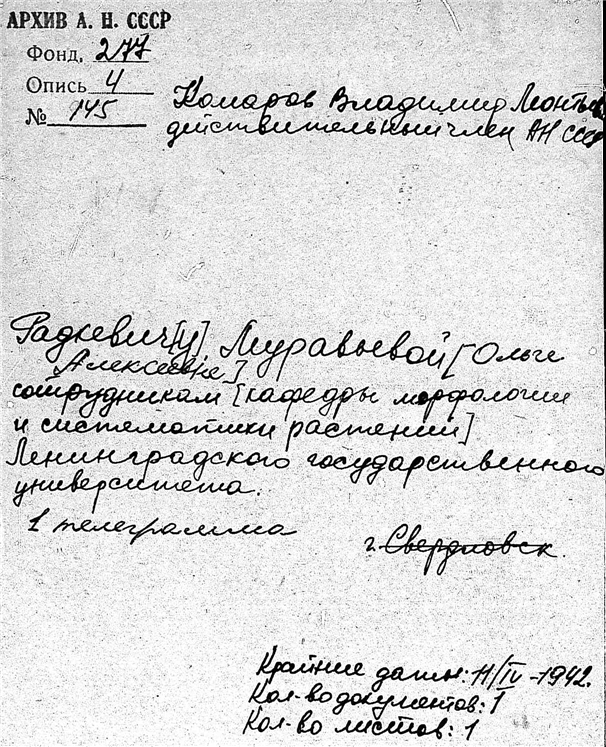 АРХИВ А. Н. СССР
Фонд. 277
Опись 4
№ 145
Комаров Владимир Леонтьев
действительный член АН СССР
Радкевич[у] Муравьевой [Ольге
Алексеевне]
сотрудникам [кафедры морфологии
и систематики растений]
Ленинградского государственного
университета.
1 телеграмма
г. Свердловск.
Крайние даты: 11/IV -1942.
Кол-во документов: 1
Кол-во листов: 1